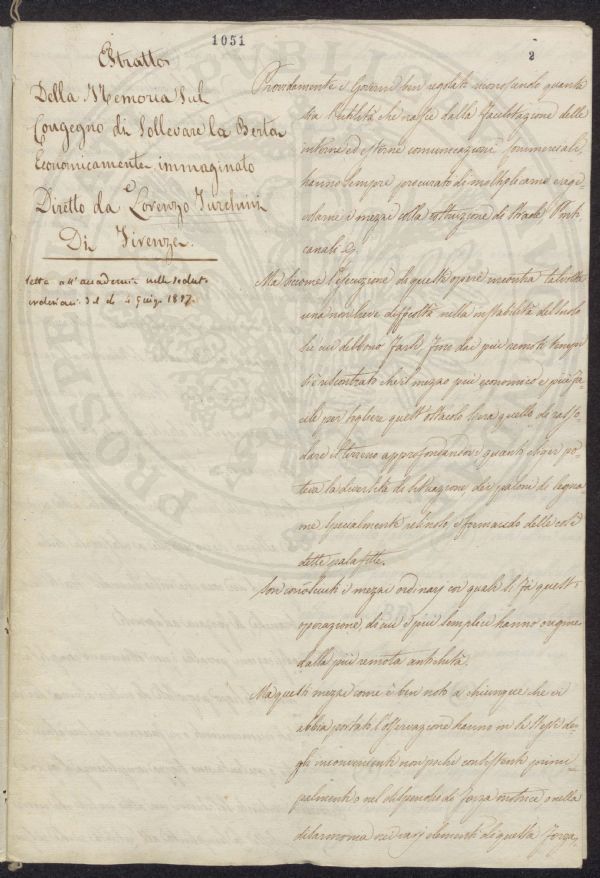 1051
2
Estratto
Della Memoria Sul
Congegno di Sollevare la Berta
Economicamente immaginato
Diretto da Lorenzo Turchini
Di Firenze.
Letta all'accademia nella seduta
ordinaria del dì 4 Giug. 1837.
Providamente i Governi ben regolati conoscendo quanta
sia l'utilità che nasce dalla facilitazione delle
interne ed esterne comunicazioni commerciali,
hanno sempre procurato di moltiplicarne e age-
volarne i mezzi colla costruzione di Strade Ponti
canali &.
Ma siccome l'esecuzione di queste opere incontra talvolta
una non lieve difficoltà nella instabilità del suolo
su cui debbono farsi, fino dai più remoti tempi
si è riscontrato che il mezzo più economico e più fa-
cile per togliere quest'ostacolo era quello di rasso-
dare il terreno approfondandovi quanti esiger po-
teva la diversità di situazione, dei paloni di legna
me specialmente resinoso, e formando delle così
dette palafitte.
Son conosciuti i mezzi ordinarj coi quali si fà quest'
operazione, di cui i più semplici hanno origine
dalla più remota antichità.
Ma questi mezzi come è ben noto a chiunque che vi
abbia portato l'osservazione hanno in se stessi de-
gli inconvenienti non pochi consistenti princi-
palmente o nel dispendio di forza motrice o nella
disarmonia nei varj elementi di questa forza,